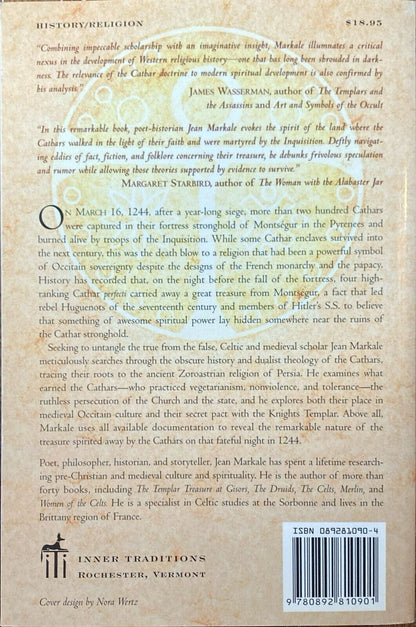 HISTORY/RELIGION $18.95
"Combining impeccable scholarship with an imaginative insight, Markale illumnates a critical
nexus in the development of Western religious history—one that has long been shrouded in dark-
ness. The relevance of the Cathar doctrine to modern spiritual development is also confirmed by
his analysis."
JAMES WASSERMAN, author of The Templars and
the Assassins and Art and Symbols of the Occult
"In this remarkable book, poet-historian Jean Markale evokes the spirit of the land where the
Cathars walked in the light of their faith and were martyred by the Inquisition. Deftly navigat-
ing eddies of fact, fiction, and folklore concerning their treasure, he debunks frivolous speculation
and rumor while allowing those theories supported by evidence to survive."
MARGARET STARBIRD, author of The Woman with the Alabaster Jar
ON MARCH 16, 1244, after a year-long siege, more than two hundred Cathars
were captured in their fortress stronghold of Montségur in the Pyrenees and
burned alive by troops of the Inquisition. While some Cathar enclaves survived into
the next century, this was the death blow to a religion that had been a powerful symbol
of Occitain sovereignty despite the designs of the French monarchy and the papacy.
History has recorded that, on the night before the fall of the fortress, four high-
ranking Cathar perfecti carried away a great treasure from Montségur, a fact that led
rebel Huguenots of the seventeenth century and members of Hitler's S.S. to believe
that something of awesome spiritual power lay hidden somewhere near the ruins of
the Cathar stronghold.
Seeking to untangle the true from the false, Celtic and medieval scholar Jean Markale
meticulously searches through the obscure history and dualist theology of the Cathars,
tracing their roots to the ancient Zoroastrian religion of Persia. He examines what
earned the Cathars—who practiced vegetarianism, nonviolence, and tolerance—the
ruthless persecution of the Church and the state, and he explores both their place in
medieval Occitain culture and their secret pact with the Knights Templar. Above all,
Markale uses all available documentation to reveal the remarkable nature of the
treasure spirited away by the Cathars on that fateful night in 1244.
Poet, philosopher, historian, and storyteller, Jean Markale has spent a lifetime research-
ing pre-Christian and medieval culture and spirituality. He is the author of more
than forty books, including The Templar Treasure at Gisors, The Druids, The Celts, Merlin, and
Women of the Celts. He is a specialist in Celtic studies at the Sorbonne and lives in the
Brittany region of France.
INNER TRADITIONS
ROCHESTER, VERMONT
Cover design by Nora Wertz
ISBN 089281090-4
9 780892 810901